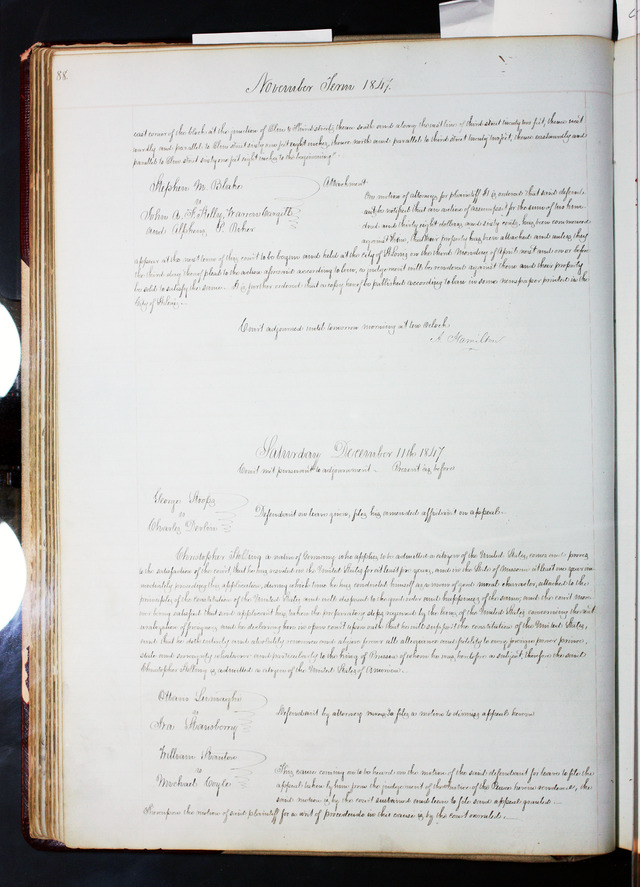 88
November Term 1847.
east corner of the block at the junction of Elm & Third streets, thence south and along the east line of third street twenty two feet, thence east
wardly and parallel to Elm street sixty nine feet eight inches, thence north and parallel to third street twenty two feet, thence westwardly and
parallel to Elm street sixty nine feet eight inches to the beginning.
Stephen M. Blake
vs
John A.
and
Attachment
On motion of attorney for plaintiff it is ordered that said defend
ants be notified that an action of assumpsit for the sum of two hun
dred and thirty eight dollars and sixty cents, has been commenced
against them, that their property has been attached and unless they
appear at the next term of this court to be begun and held at the City of St Louis on the third Monday of April next and on or before
the third day thereof plead to the action aforesaid according to law, a judgement will be rendered against them and their property
be sold to satisfy the same. It is further ordered that a copy hereof be published according to law in some newspaper printed in the
City of St Louis.
Court adjourned until tomorrow morning at ten oclock.
A. Hamilton
Saturday December 11th 1847
Court met pursuant to adjournment — Present as before
George
vs
Charles Devlin
Defendant on leave given, files his amended affidavit on appeal.
Christopher a native of Germany who applies to be admitted a citizen of the United States, comes and proves
to the satisfaction of the court that he has resided in the United States for at least five years, and in the State of Missouri at least one year im
mediately preceding this application, during which time he has conducted himself as a man of good moral character, attached to the
principles of the constitution of the United States and well disposed to the good order and happiness of the same, and the court more
over being satisfied that said applicant has taken the preparatory steps required by the laws of the United States, concerning the nat
uralization of foreigners, and he declaring here in open court upon oath that he will support the constitution of the United States,
and that he doth entirely and absolutely renounce and abjure forever all allegiance and fidelity to every foreign power, prince,
state and sovereignty whatever and particularly to the King of Prussia of whom he was heretofore a subject, therefore the said
Christopher is admitted a citizen of the United States of America.
vs
Ira Stansberry
Defendant by attorney files a motion to dismiss appeal herein
William Stanton
vs
Michael Coyle
This cause coming on to be heard on the motion of the said defendant for leave to file the
appeal taken by him from the judgement of the Justice of the Peace herein rendered, the
said motion is by the court sustained and leave to file said appeal granted.
Whereupon the motion of said plaintiff for a writ of procedendo in this cause is by the court overruled.